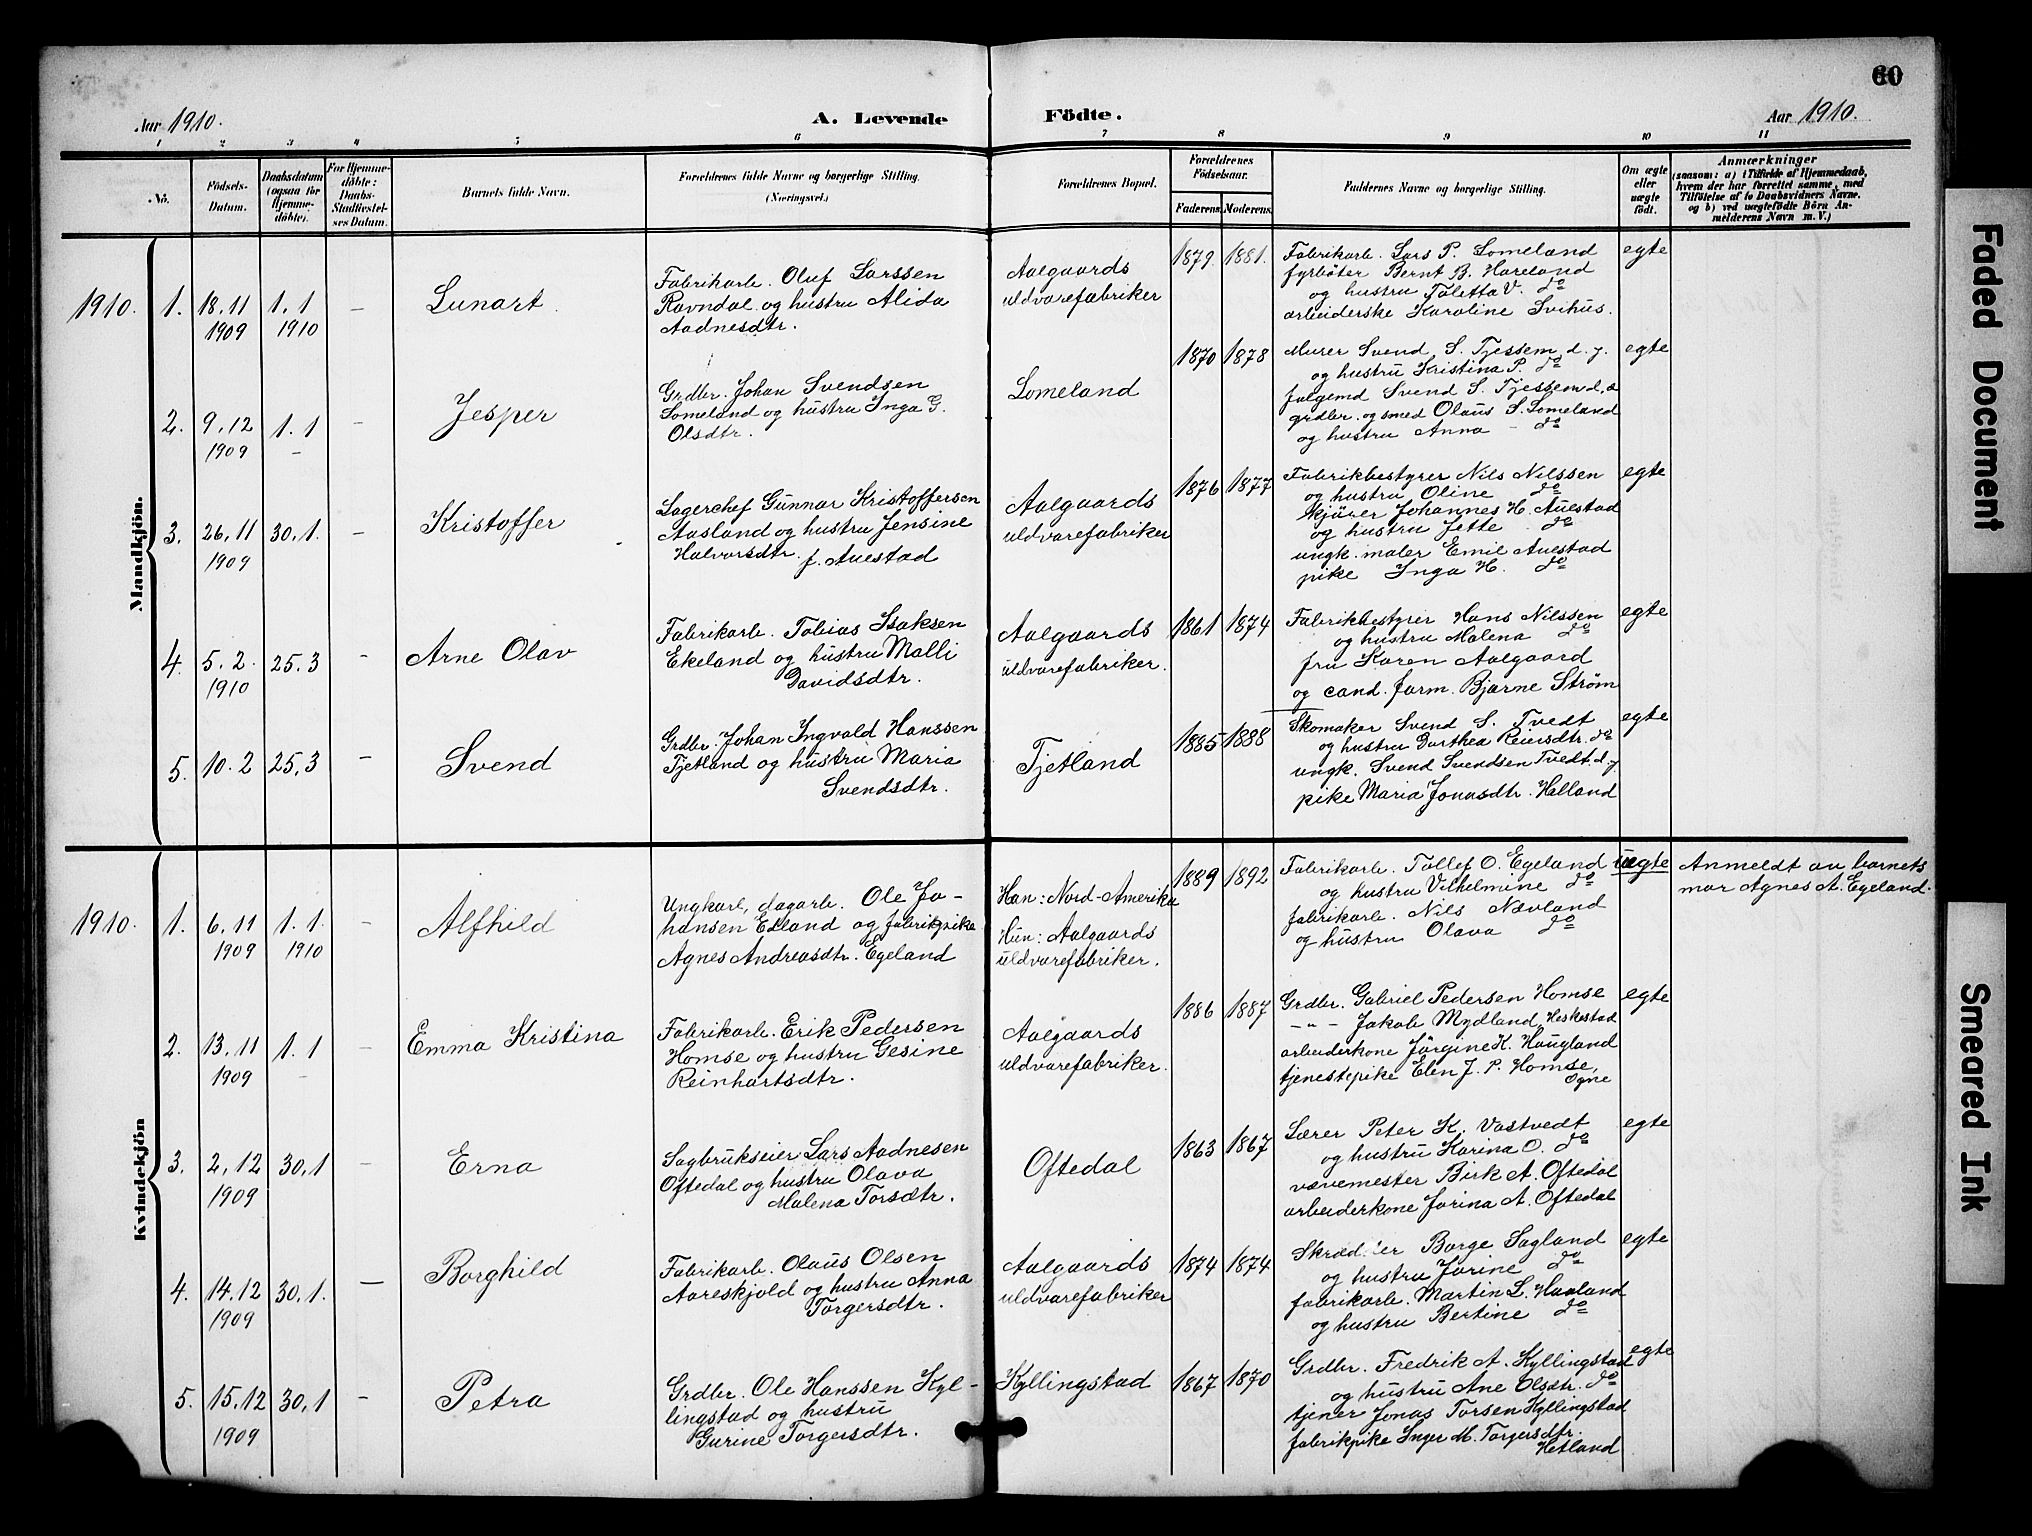 60
Aar 1910.
A. Levende Födte.
Aar 1910.
1 2 3 4 5 6 7 8 9 10 11
No.
Födsels-
Datum.
Daabsdatum
(ogsaa for
Hjemme-
döbte).
For Hjemme-
döbte:
Daabs-
Stadfæstel-
ses Datum.
Barnets fulde Navn.
Forældrenes fulde Navne og borgerlige Stilling.
(Næringsvei.)
Forældrenes Bopæl.
Forældrenes
Födselsaar.
Faderens. Moderens.
Faddernes Navne og borgerlige Stilling.
Om ægte
eller
uægte
födt.
Anmærkninger
(saasom: a) i Tilfælde af Hjemmedaab,
hvem der har forrettet samme, med
Tilföielse af to Daabsvidners Navne.
og b) ved uægtefödte Börn An-
melderens Navn m. V.)
Mandkjön.
1910. 1. 18.11
1909
1.1
1910
—
Lunart.
Fabrikarb. Oluf Larssen
Ravndal og hustru Alida
Aadnesdtr.
Aalgaards
uldvarefabriker
1879. 1881.
Fabrikarb. Lars P. Lomeland
fyrbøter Bernt B. Hareland
og hustru Taletta V. do
arbeiderske Karoline Svihus.
egte
2. 9.12
1909
1.1
—
—
Jesper
Grdbr. Johan Svendsen
Lomeland og hustru Inga G.
Olsdtr.
Lomeland
1870 1878
Murer Svend S. Tjessem d. y.
og hustru Kristina P. do
folgemd Svend S. Tjessem d. æ
grdbr. og smed Olaus S. Lomeland
og hustru Anna - do
egte
3. 26.11
1909
30.1.
—
Kristoffer
Lagerchef Gunnar Kristoffersen
Aasland og hustru Jensine
Halvorsdtr. f. Auestad
Aalgaards
uldvarefabriker
1876 1877
Fabrikbestyrer Nils Nilssen
og hustru Oline do
kjører Johannes H. Auestad
og hustru Jette do
ungk. maler Emil Auestad
pike Inga H. do
egte
4. 5.2.
1910
25.3
—
Arne Olav
Fabrikarb. Tobias Isaksen
Ekeland og hustru Malli
Davidsdtr.
Aalgaards
uldvarefabriker.
1861 1874
Fabrikbestyrer Hans Nilssen
og hustru Malena do
fru Karen Aalgaard
og cand. farm. Bjarne Strøm
egte
5. 10.2
25.3
—
Svend
Grdbr. Johan Ingvald Hanssen
Tjetland og hustru Maria
Svendsdtr.
Tjetland
1885 1888
Skomaker Svend S. Tvedt
og hustru Dorthea Reinsdtr. do
ungk. Svend Svendsen Tvedt d. y
pike Maria Jonasdtr. Helland
egte
Kvindekjön
1910. 1. 6.11
1909
1.1.
1910
—
Alfhild
Ungkarl, dagarb. Ole Jo-
hansen Edland og fabrikpike
Agnes Andreasdtr. Egeland
Han: Nord-Amerika
Hun: Aalgaards
uldvarefabriker.
1889 1892
Fabrikarb. Tollef O. Egeland
og hustru Vilhelmine do
fabrikarb. Nils Nævland
og hustru Olava do
uegte
Anmeldt av barnets
mor Agnes A. Egeland.
2. 13.11
1909
1.1
—
—
Emma Kristina
Fabrikarb. Erik Pedersen
Homse og hustru Gesine
Reinhartsdtr.
Aalgaards
uldvarefabriker.
1886 1887
Grdbr. Gabriel Pedersen Homse
-"- Jakob Mydland, Heskestad
arbeiderkone Jørgine K. Haugland
tjenestepike Elen J. P. Homse,
Ogne
egte
3. 2.12
1909
30.1
—
Erna
Sagbrukseier Lars Aadnesen
Oftedal og hustru Olava
Malena Torsdtr.
Oftedal
1863 1867
Lærer Peter K. Vastvedt
og hustru Karina O. do
vævemester Birk A. Oftedal
arbeiderkone Jorina A. Oftedal
egte
4. 14.12
1909
30.1.
—
Borghild
Fabrikarb. Olaus Olsen
Aareskjold og hustru Anna
Torgersdtr.
Aalgaards
uldvarefabriker
1874 1874
Skrædder Borge Sagland
og hustru Jorine do
fabrikarb. Martin L. Haaland
og hustru Bertine do
egte
5. 15.12
1909
30.1
—
Petra
Grdbr. Ole Hanssen Kyl-
lingstad og hustru
Gurine Torgersdtr.
Kyllingstad
1867 1870
Grdbr. Fredrik A. Kyllingstad
og hustru Ane Olsdtr. do
tjener Jonas Torsen Kyllingstad
fabrikpike Inger M. Torgersdtr.
Hetland
egte
Faded Document
Smeared Ink